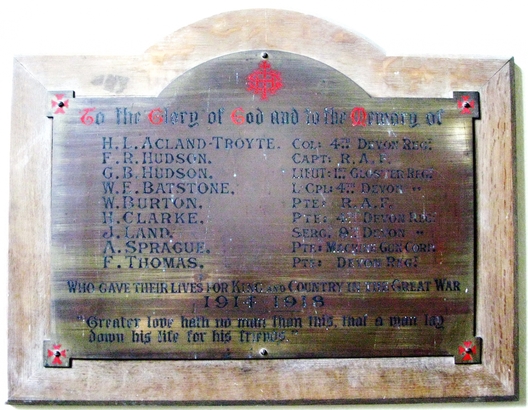 To the Glory of God and to the Memory of
H. L. ACLAND-TROYTE. COL: 4TH DEVON REGT
F. R. HUDSON. CAPT: R. A. F.
G. B. HUDSON. LIEUT: 1ST GLOSTER REGT
W. F. BATSTONE. L. CPL: 4TH DEVON "
W. BURTON. PTE: R. A. F.
H. CLARKE. PTE: DEVON REGT
J. LAND. SERG. DEVON "
A. SPRAGUE. PTE: MACHINE GUN CORPS
F. THOMAS. PTE: DEVON REGT
WHO GAVE THEIR LIVES FOR KING AND COUNTRY IN THE GREAT WAR
1914 1918
"Greater love hath no man than this, that a man lay
down his life for his friends."